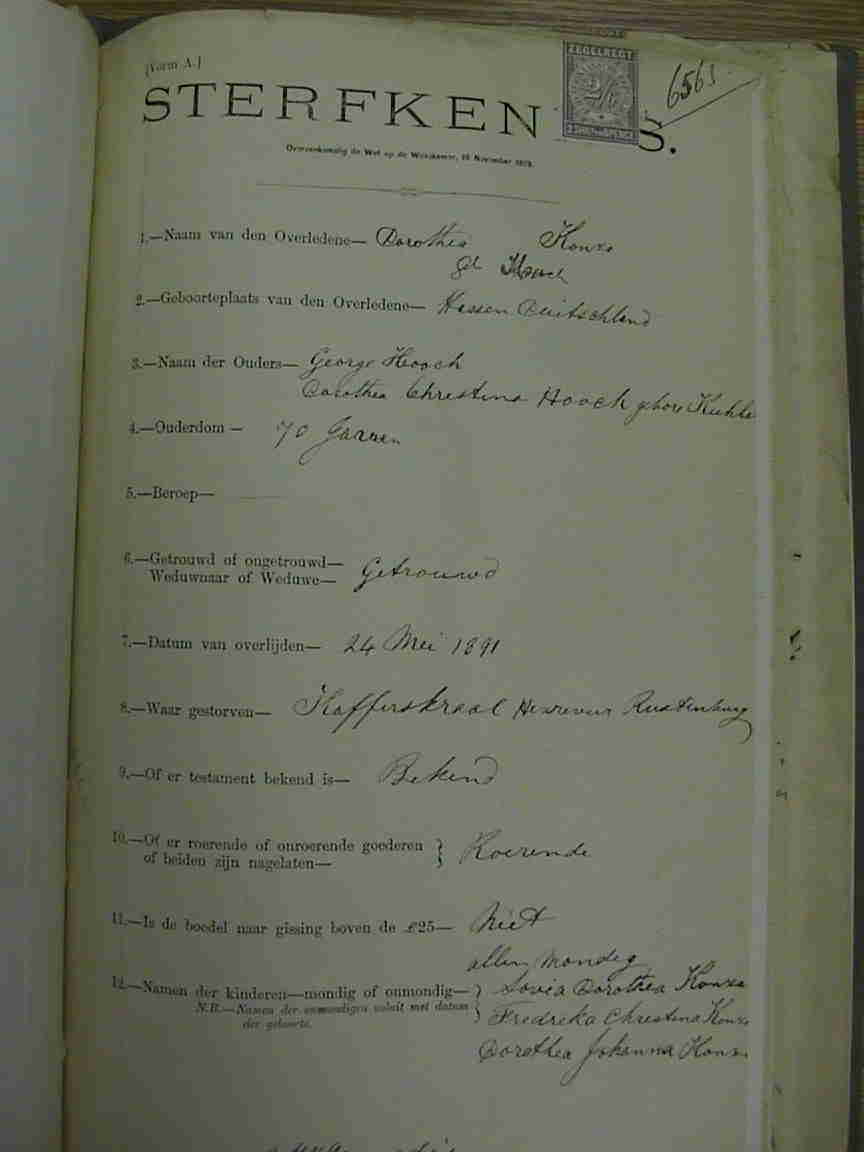 [Vorm A.]
ZEGELREGT
2/6
2 SHILL. 6 PENCE
6565
STERFKEN S.
Overeenkomstig de Wet op de Weeskamer, November
1.—Naam van den Overledene— Dorothea Konze
gb Hooch
2.—Geboorteplaats van den Overledene— Hessen Duitschland
3.—Naam der Ouders— George Hooch
Dorothea Christina Hooch gebore Kuhle
4.—Ouderdom— 70 Jaaren
5.—Beroep—
6.—Getrouwd of ongetrouwd—
Weduwnaar of Weduwe— Getrouwd
7.—Datum van overlijden— 24 Mei 1891
8.—Waar gestorven— Kafferskraal Hexrevier Rustenburg
9.—Of er testament bekend is— Bekend
10.—Of er roerende of onroerende goederen
of beiden zijn nagelaten— Roerende
11.—Is de boedel naar gissing boven de £25— Niet
allen mondig
12.—Namen der kinderen—mondig of onmondig— Sovia Dorothea Konze
N.B.—Namen der onmondigen voluit met datum Fredreka Christina Konze
der geboorte.
Dorothea Johanna Konze